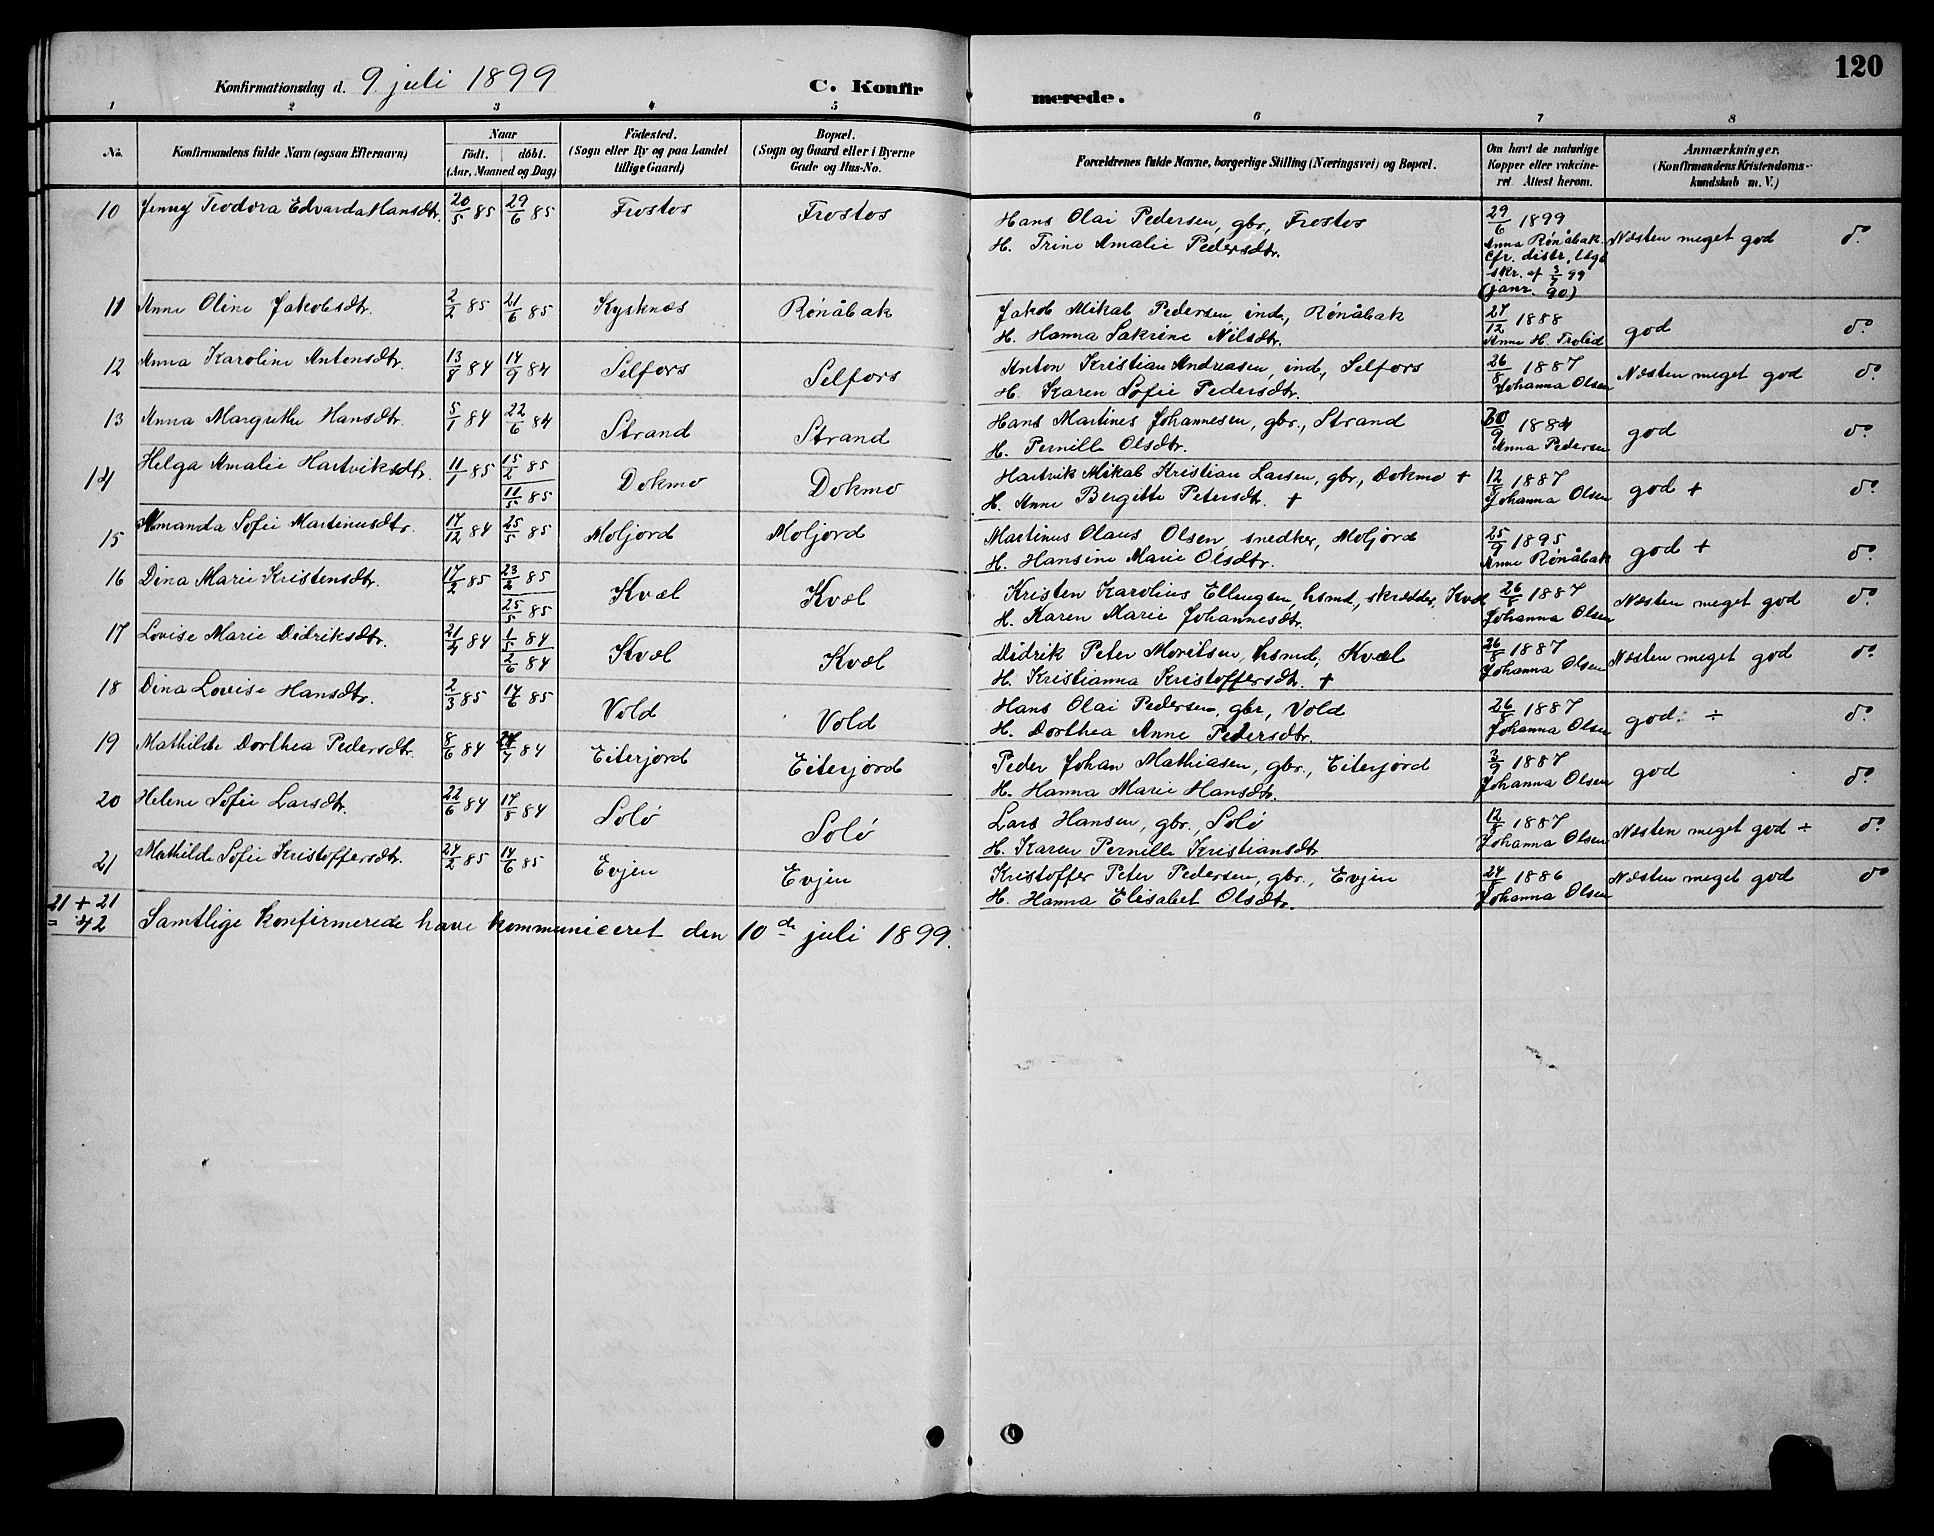 Konfirmationsdag d. 9 juli 1899
C. Konfirmerede.
120
1 2 3 4 5 6 7 8
No. Konfirmandens fulde Navn (ogsaa Efternavn) Naar födt. döbt. (Aar, Maaned og Dag) Födested. (Sogn eller By og paa Landet tillige Gaard) Bopæl. (Sogn og Gaard eller i Byerne Gade og Hus-No. Forældrenes fulde Navne, borgerlige Stilling (Næringsvei) og Bopæl. Om havt de naturlige Kopper eller vakcineret. Attest herom. Anmærkninger. (Konfirmandens Kristendomskundskab m. V.)
10 Jenny Teodora Edvarda Hansdtr. 20/5 85 29/6 85 Frostos Frostos Hans Olai Pedersen, gbr., Frostos 29/6 1899
H. Trine Amalie Pedersdtr. Anna Rönåbak Næsten meget god do
cfr. distr. lægesskr. af 3/7 99
(janr. 90)
11 Anne Oline Jakobsdtr. 2/2 85 21/6 85 Kysknæs Rönåbak Jakob Mikal Pedersen ind., Rönåbak 27/12 1888
H. Hanna Sakrine Nilsdtr. Anne H. Trolid god do
12 Anna Karoline Antonsdtr. 13/8 84 14/9 84 Selfors Selfors Anton Kristian Andreasen, ind., Selfors 26/8 1887
H. Karen Sofie Pedersdtr. Johanna Olsen Næsten meget god do
13 Anna Margrethe Hansdtr. 5/1 84 22/6 84 Strand Strand Hans Martines Johannesen, gbr., Strand 30/9 1884
H. Pernille Olsdtr. Anna Pedersen god do
14 Helga Amalie Hartviksdtr. 11/1 85 15/2 85 11/5 85 Dokmo Dokmo Hartvik Mikal Kristian Larsen, gbr., Dokmo + 12/8 1887
H. Anne Bergitte Petersdt. + Johanna Olsen god + do
15 Amanda Sofie Martinusdtr. 17/12 84 25/5 85 Moljord Moljord Martinus Olaus Olsen, snedker, Moljord 25/9 1895
H. Hansine Marie Olsdtr. Anne Rönåbak god + do
16 Dina Marie Kristensdtr. 17/2 85 23/2 85 25/5 85 Kvæl Kvæl Kristen Karolius Ellingsen, hsmd., skrædder, Kvæl 26/8 1887
H. Karen Marie Johannesdtr. Johanna Olsen Næsten meget god do
17 Lovise Marie Didriksdtr. 21/4 84 1/5 84 2/6 84 Kvæl Kvæl Didrik Peter Moritsen, hsmd., Kvæl 26/8 1887
H. Kristianna Kristoffersdt. + Johanna Olsen Næsten meget god do
18 Dina Lovise Hansdtr. 2/3 85 14/6 85 Vold Vold Hans Olai Pedersen, gbr., Vold 26/8 1887
H. Dorthea Anne Pedersdtr. Johanna Olsen god ÷ do
19 Mathilde Dorthea Pedersdtr. 8/6 84 27/7 84 Eiterjord Eiterjord Peder Johan Mathiasen, gbr., Eiterjord 3/9 1887
H. Hanna Marie Hansdtr. Johanna Olsen god do
20 Helene Sofie Larsdtr. 22/6 84 17/8 84 Solö Solö Lars Hansen, gbr., Solö 12/8 1887
H. Karen Pernille Kristiansdtr Johanna Olsen Næsten meget god ÷ do
21 Mathilde Sofie Kristoffersdtr. 24/2 85 14/6 85 Evjen Evjen Kristoffer Peter Pedersen, gbr., Evjen 24/8 1886
H. Hanna Elisabet Olsdtr. Johanna Olsen Næsten meget god do
21 + 21
= 42 Samtlige konfirmerede have kommuniceret den 10de juli 1899.